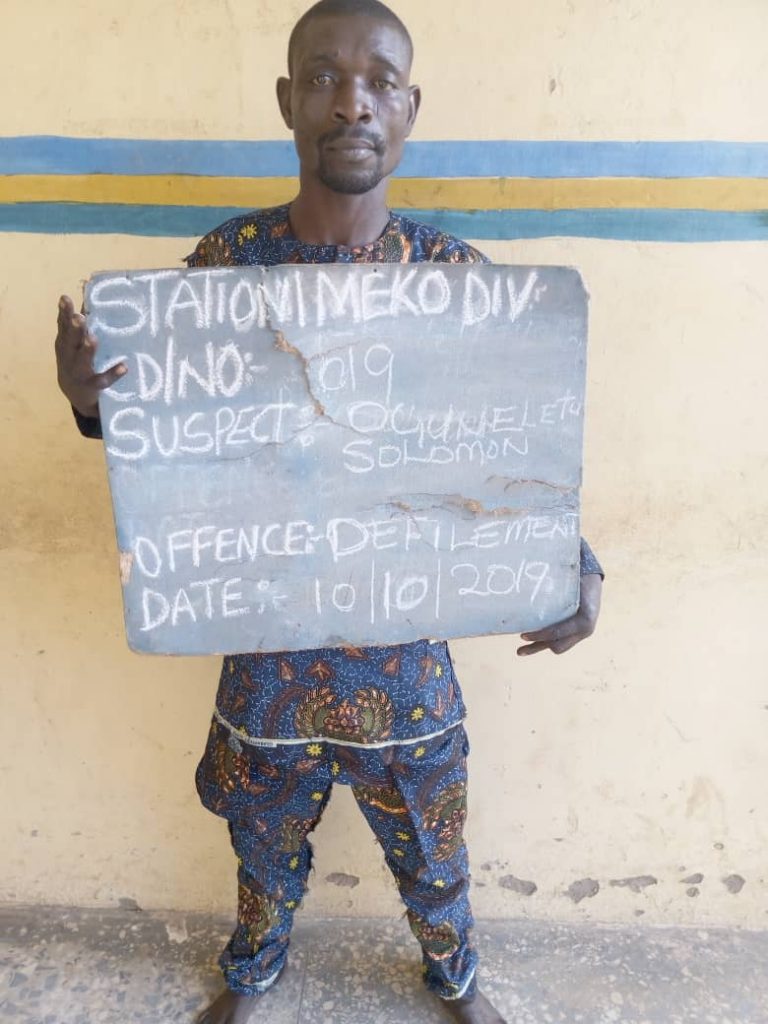 STATION IMEKO DIV:
CD/NO:- 019
SUSPECT: OGUNLELETU
SOLOMON
OFFENCE:- DEFILEMENT
DATE:- 10/10/2019